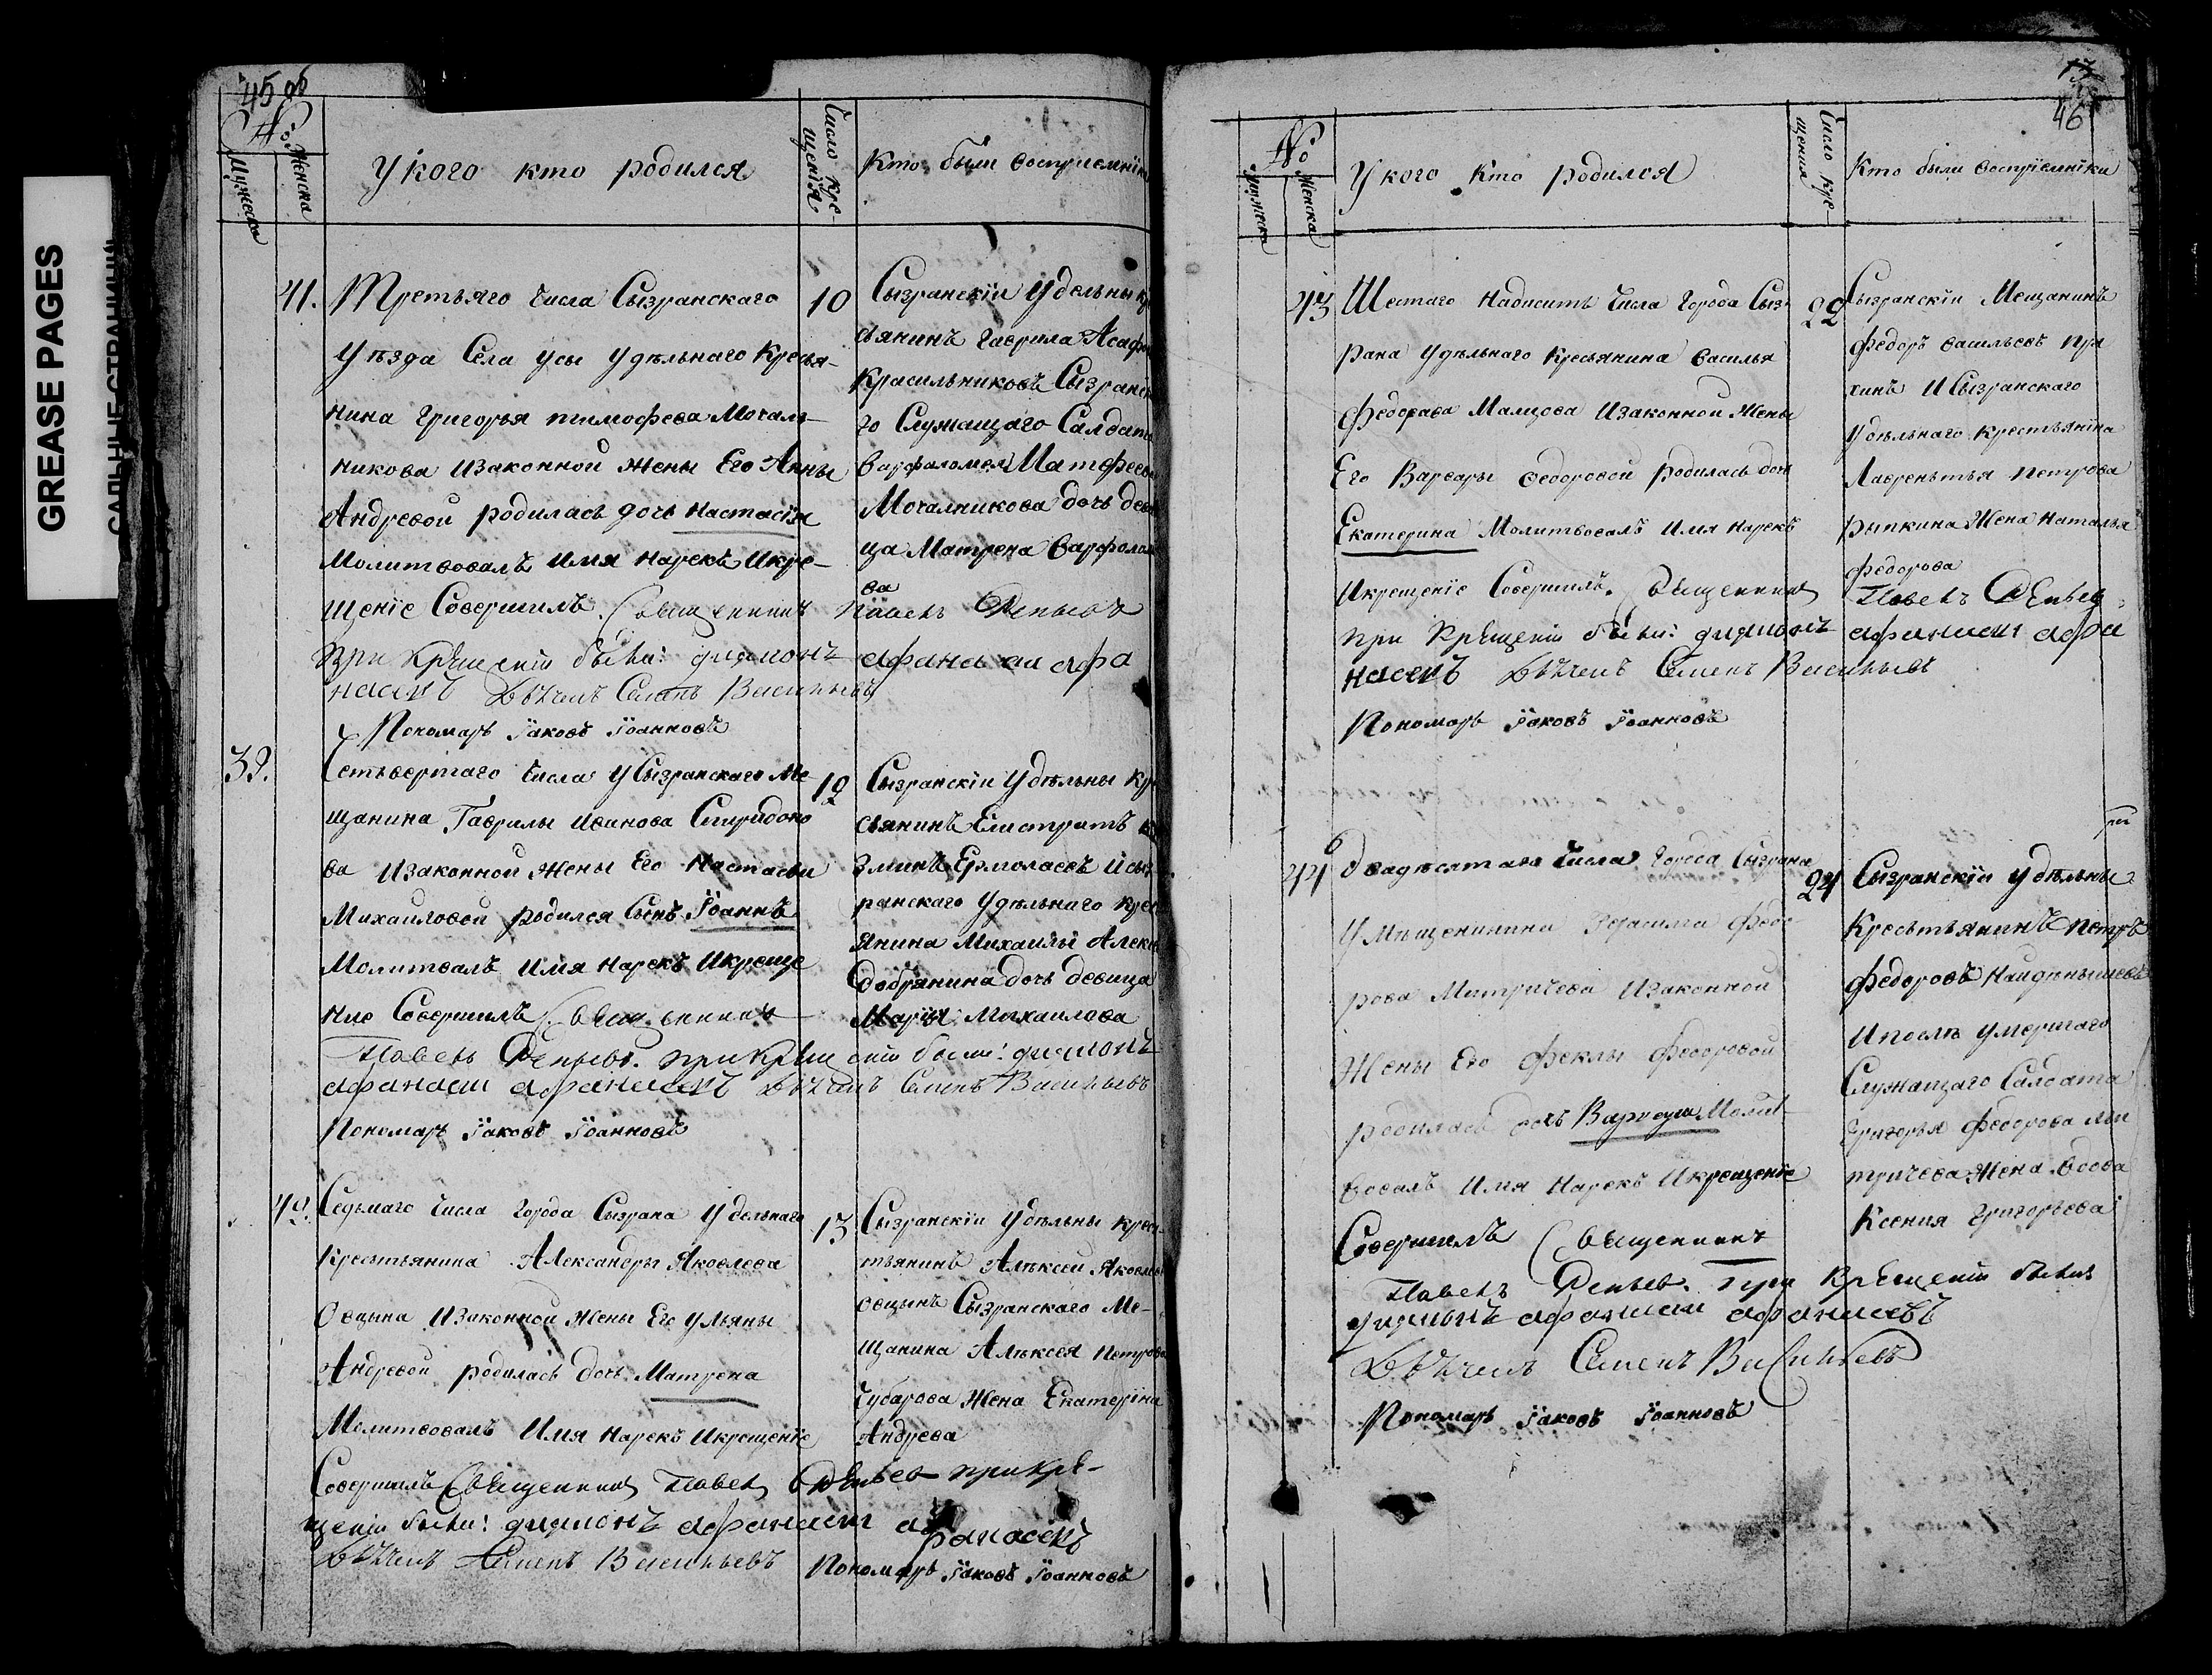 GREASE PAGES
45 об
№
Мужеска
Женска
У кого кто родился
Число кре-
щенїя
Кто были воспрїемники
41.
Третьяго Числа Сызранскаго
Уѣзда Села Усы Удѣльнаго Кресья-
нина Григорья тимофеева Мочаль-
никова Изаконной жены Его Анны
Андревой родилась дочь Настасїя
Молитвовалъ Имя Нарекъ Икре-
щенїе Совершилъ Священникъ Павелъ
При Крещенїи были: диаконъ афанасии афа
насевъ Семенъ Васильевъ
Пономарь Їаковъ Їоанновъ
10
Сызранскїи Удельны кр
сьянинъ Гаврила Асаф
Красильниковъ Сызранск
го Служащаго Салдата
Варфаломея Матфеева
Мочалникова дочь деви
ца Матрена Варфолом
ва
39.
Четьвертаго Числа У Сызранскаго Ме
щанина Гаврилы Иванова Спиридоно
ва Изаконной Жены Его Настасьи
Михаиловой родился Сынъ Їоаннъ
Молитвалъ Имя Нарекъ Икреще
ние Совершилъ Священникъ
Павелъ При Крещенїи были: диаконъ
афанасии афанасевъ Семенъ Васильевъ
Пономарь Їаковъ Їоанновъ
12
Сызранскїи Удѣльны Кре
сьянинъ Елистратъ Ку
зминъ Ермолаевъ И сыз
ранскаго Удѣльнаго крес
янина Михаилы Алекс
Добрянина дочь девица
Марїя Михаилова
42.
Седьмаго Числа Города Сызрана Удельнаго
Кресьтьянина Александры Яковлева
Овцына Изаконной жены Его Ульяны
Андревой родилась дочь Матрена
Молитвовалъ Имя Нарекъ Икрещенїе
Совершилъ Священникъ Павел при кре-
щенїи были: диаконъ афанасии афанасевъ
Семенъ Васильевъ Пономарь Їаковъ Їоанновъ
13
Сызранскїи Удѣльны крес-
тьянинъ Алѣксеи Яковлев
Овцынъ Сызранскаго Ме-
щанина Алѣксея Петрова
Чубарова Жена Екатерїна
Андрева
46
№
Мужеска
Женска
У кого Кто родился
Число кре-
щения
Кто были воспрїемнїки
43
Шестаго Надисить Числа Города Сыз-
рана Удѣльнаго Кресьянина Василья
Федорава Малцова Изаконной Жены
Его Варвары Федоровой родилась дочь
Екатерина Молитвовалъ Имя Нарекъ
Икрещенїе Совершилъ. Священникъ Павелъ
при Крещенїи были: диаконъ афанасии афа
насевъ Семенъ Васильевъ
Пономарь Їаковъ Їоанновъ
22
Сызранскїи Мещанинъ
Федоръ Васильевъ Пря
хинъ И Сызранскаго
Удѣльнаго крестьянїна
Лаврентья Петрова
рыпкина Жена Наталья
Федорова
44
двадѣсятаго Числа Города Сызрана
У Мѣщенинина Герасима Федо
рова Митричева Изаконной
Жены Его Феклы Федоровой
родилась дочь Варвара Молит
вовалъ Имя Нарекъ Икрещенїе
Совершилъ Священникъ
Павелъ При Крещенїи были
диаконъ афанасии афанасевъ
Семенъ Васильевъ
Пономарь Їаковъ Їоанновъ
24
Сызранскїи Удѣльны
Кресьтьянинъ Петръ
Федоровъ Наидѣнышевъ
И послѣ Умершаго
Служащаго Салдата
Григорья Федорова Ми
тричева Жена Вдова
Ксения Григорьева